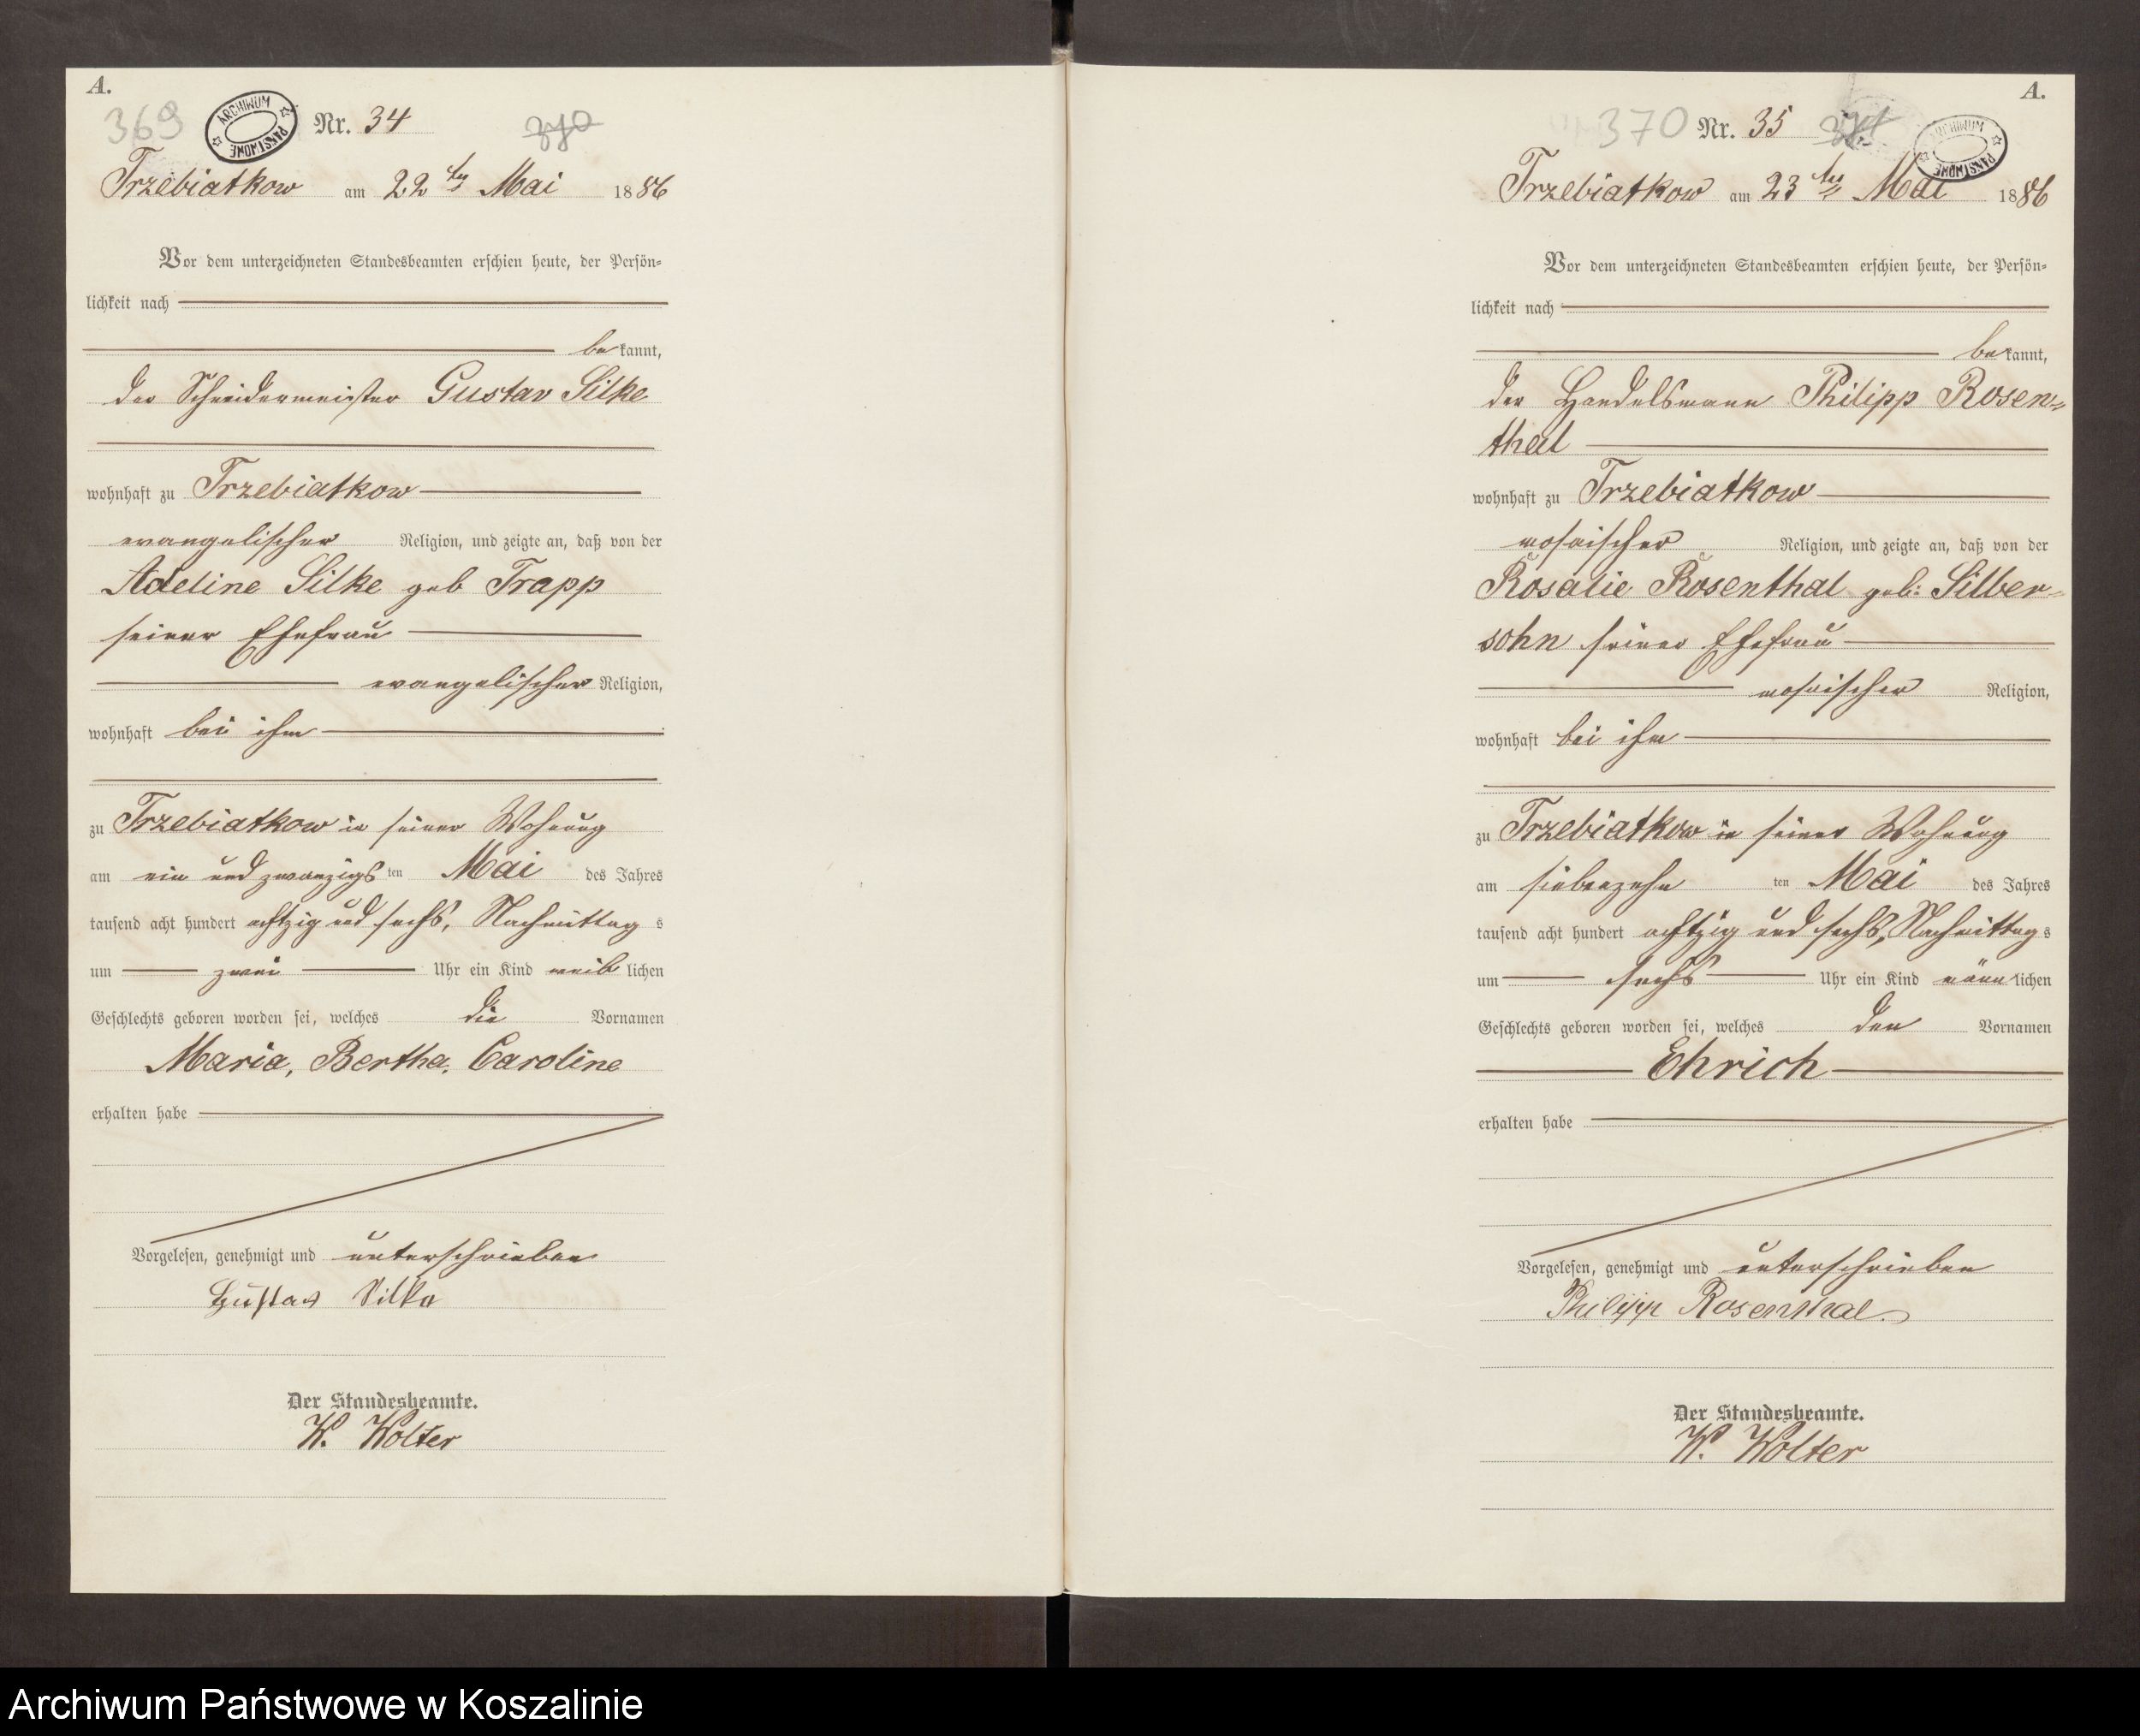 A.
369
ARCHIWUM PAŃSTWOWE
Nr. 34
370
Trzebiatkow am 22ten Mai 1886
Vor dem unterzeichneten Standesbeamten erschien heute, der Persön-
lichkeit nach
bekannt,
der Schneidermeister Gustav Silke
wohnhaft zu Trzebiatkow
evangelischer Religion, und zeigte an, daß von der
Adeline Silke geb Trapp
seiner Ehefrau
evangelischer Religion,
wohnhaft bei ihm
zu Trzebiatkow in seiner Wohnung
am ein und zwanzigsten Mai des Jahres
tausend acht hundert achtzig und sechs, Nachmittags
um zwei Uhr ein Kind weiblichen
Geschlechts geboren worden sei, welches die Vornamen
Maria, Bertha, Caroline
erhalten habe
Vorgelesen, genehmigt und unterschrieben
Gustav Silke
Der Standesbeamte.
W. Wolter
A.
370 Nr. 35 371
ARCHIWUM PAŃSTWOWE
Trzebiatkow am 23ten Mai 1886
Vor dem unterzeichneten Standesbeamten erschien heute, der Persön-
lichkeit nach
bekannt,
der Handelsmann Philipp Rosen-
thal
wohnhaft zu Trzebiatkow
mosaischer Religion, und zeigte an, daß von der
Rosalie Rosenthal geb: Silber-
sohn seiner Ehefrau
mosaischer Religion,
wohnhaft bei ihm
zu Trzebiatkow in seiner Wohnung
am siebenzehnten Mai des Jahres
tausend acht hundert achtzig und sechs, Nachmittags
um sechs Uhr ein Kind männlichen
Geschlechts geboren worden sei, welches den Vornamen
Ehrich
erhalten habe
Vorgelesen, genehmigt und unterschrieben
Philipp Rosenthal.
Der Standesbeamte.
W. Wolter
Archiwum Państwowe w Koszalinie